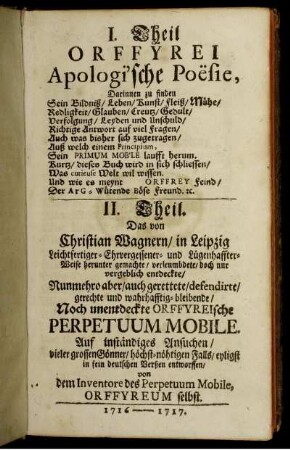 I. Theil
ORFFYREI
Apologi'sche Poësie,
Darinnen zu finden
Sein Bildniß/ Leben/ Kunst/ Fleiß/ Mühe/
Redligkeit/ Glauben/ Creutz/ Gedult/
Verfolgung/ Leyden und Unschuld/
Richtige Antwort auf viel Fragen/
Auch was bisher sich zugetragen/
Auß welch einem Principium.
Sein PRIMUM MOB'LE laufft herum.
Kurtz/ dieses Buch wird in sich schliessen/
Was curieuse Welt wil wissen.
Und wie es meynt ORFFREY Feind/
Der ArG- Wütende Böse Freund. ꝛc.
II. Theil.
Das von
Christian Wagnern/ in Leipzig
Leichtfertiger- Ehrvergeßener- und Lügenhaffter-
Weise herunter gemachte/ verleumbdete/ doch nur
vergeblich entdeckte/
Nunmehro aber/ auch gerettete/ defendirte/
gerechte und wahrhafftig- bleibende/
Noch unentdeckte ORFFYREIsche
PERPETUUM MOBILE.
Auf inständiges Ansuchen/
vieler grossen Gönner/ höchst-nöhtigen Falls/ eyligst
in sein deutschen Verßen entworffen/
von
dem Inventore des Perpetuum Mobile,
ORFFYREUM selbst.
1716—1717.